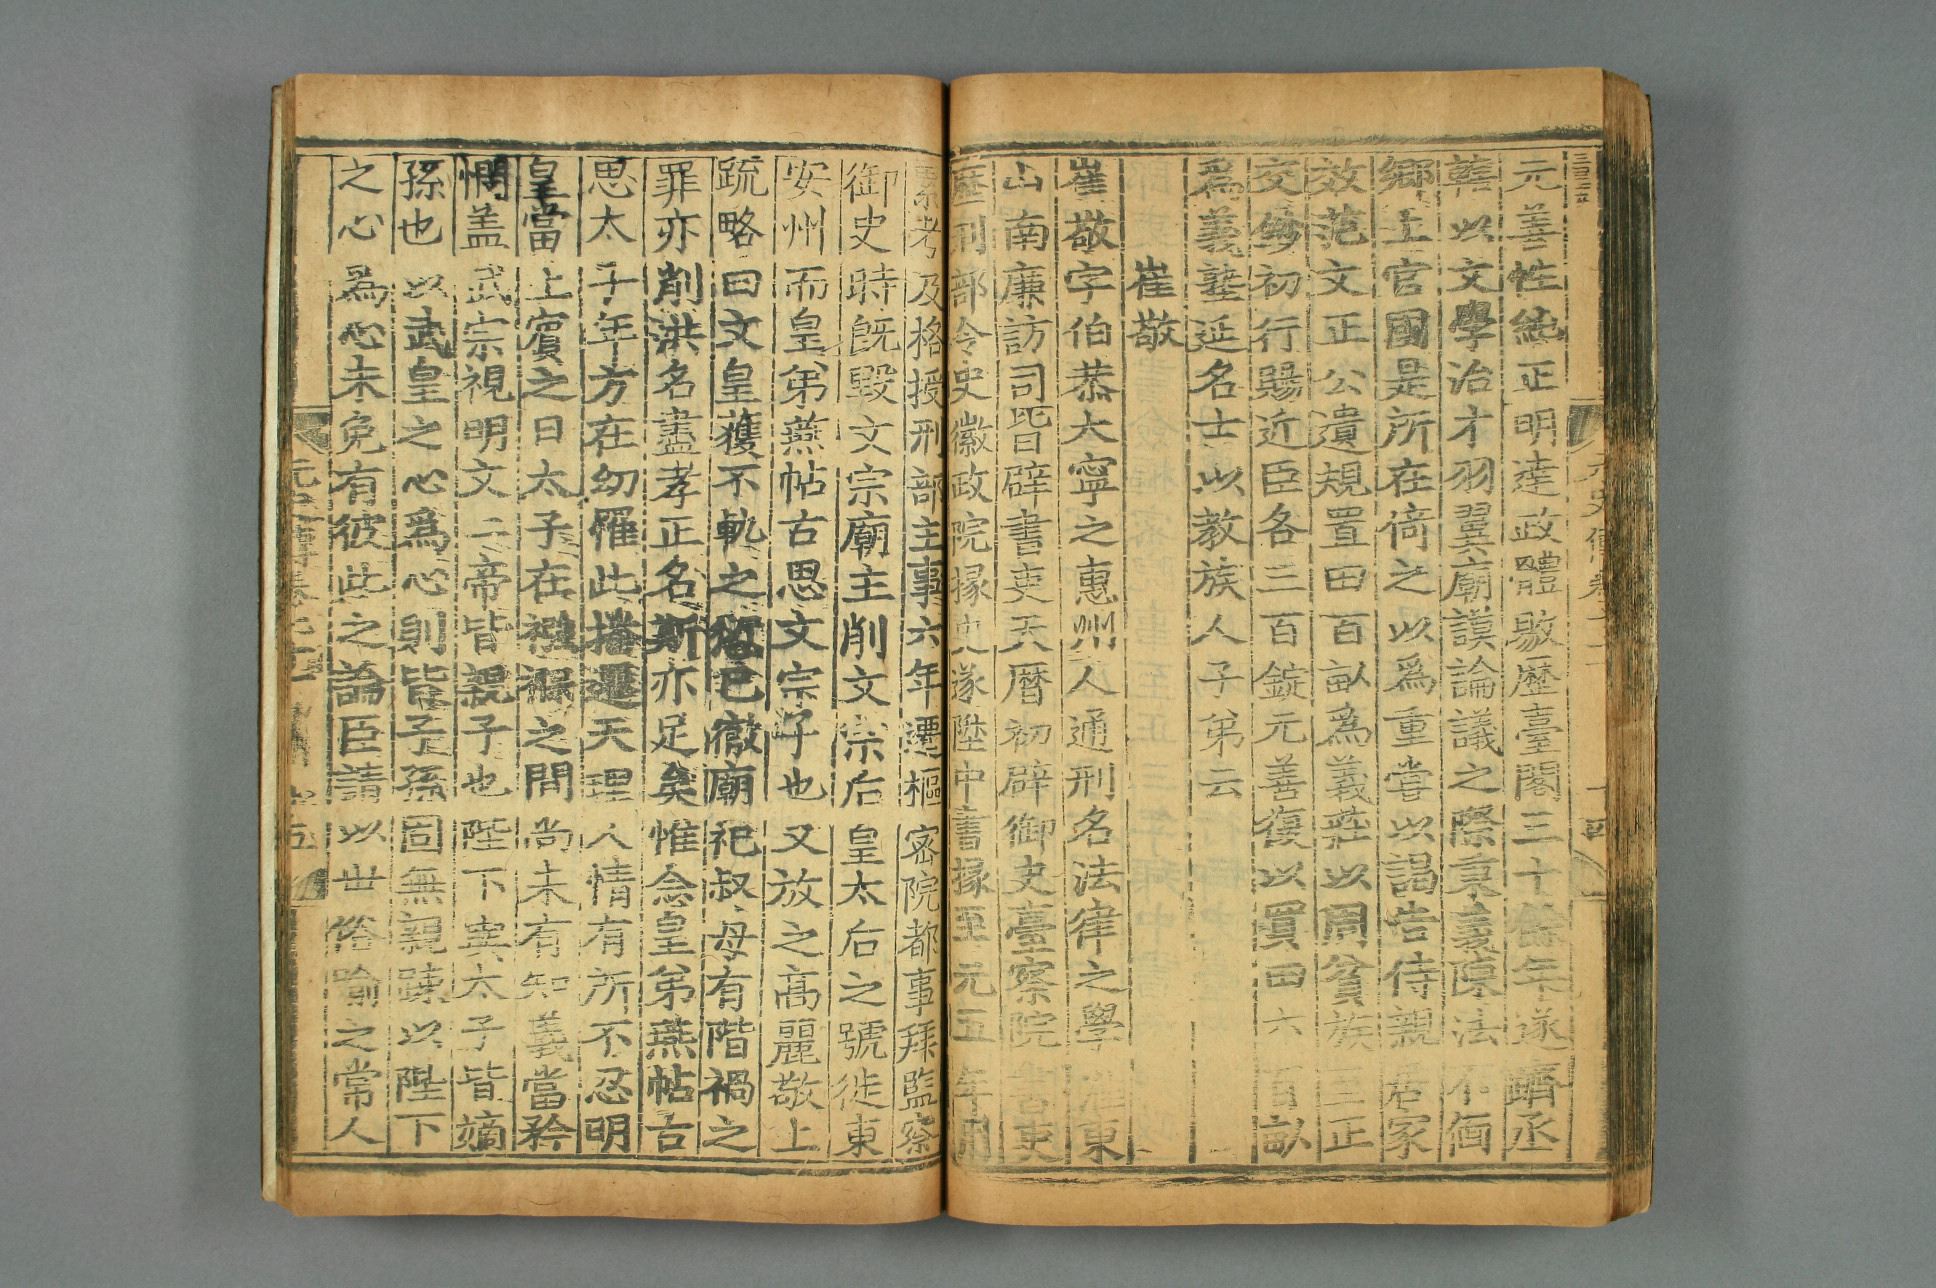 元善性純正明達政體敭歷臺閣三十餘年遂躋丞
轄以文學治才羽翼廟謨論議之際秉義陳法不徇
鄉上官國是所在倚之以爲重嘗以謁告侍親居家
效范文正公遺規置田百畝爲義莊以周貧族至正
交鈔初行賜近臣各三百錠元善復以買田六百畝
爲義塾延名士以教族人子弟云
崔敬
崔敬字伯恭大寧之惠州人通刑名法律之學淮東
山南廉訪司皆辟書吏天曆初辟御史臺察院書吏
歷刑部令史徽政院掾史遂陞中書掾至元五年用
累考及格授刑部主事六年遷樞密院都事拜監察
御史時旣毀文宗廟主削文宗后皇太后之號徙東
安州而皇弟燕帖古思文宗子也又放之高麗敬上
疏略曰文皇獲不軌之愆已徹廟祀叔母有階禍之
罪亦削洪名盡孝正名斯亦足矣惟念皇弟燕帖古
思太子年方在幼罹此播遷天理人情有所不忍明
皇當上賓之日太子在襁褓之間尚未有知義當矜
憫盖武宗視明文二帝皆親子也陛下與太子皆嫡
孫也以武皇之心爲心則皆子孫固無親疎以陛下
之心爲心未免有彼此之論臣請以世俗喻之常人